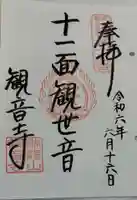 奉拝
令和六年
六月十六日
十一面観世音
観音寺